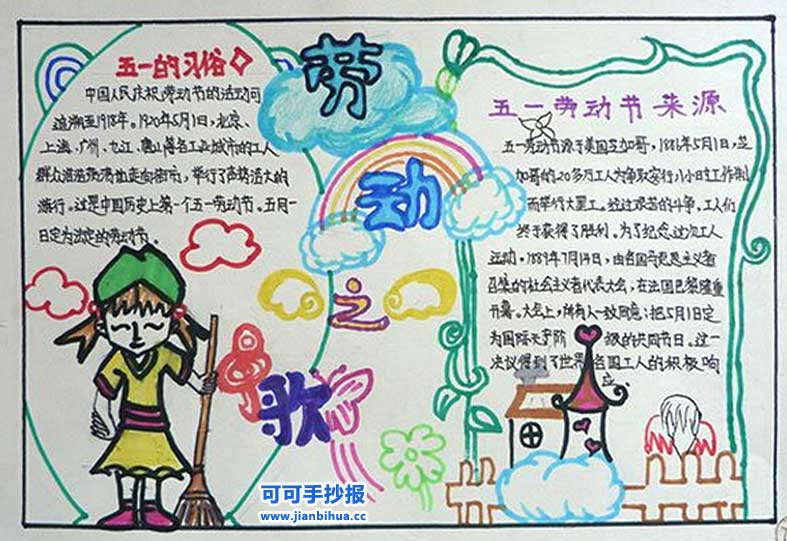 五一的习俗
中国人民庆祝劳动节的活动可
追溯至1918年。1920年5月1日，北京、
上海、广州、九江、唐山等各工业城市的工人
群众浩浩荡荡地走向街市，举行了声势浩大的
游行。这是中国历史上第一个五一劳动节。五月一
日定为法定的劳动节。
劳
动
之
歌
五一劳动节来源
五一劳动节源于美国芝加哥，1886年5月1日，芝
加哥的20多万工人为争取实行八小时工作制
而举行大罢工。经过艰苦的斗争，工人们
终于获得了胜利。为了纪念这次工人
运动，1889年7月14日，由各国马克思主义者
召集的社会主义者代表大会，在法国巴黎隆重
开幕。大会上，所有人一致同意：把5月1日定
为国际无产阶级的共同节日。这一
决议得到了世界各国工人的积极响
应。
可可手抄报
www.jianbihua.cc